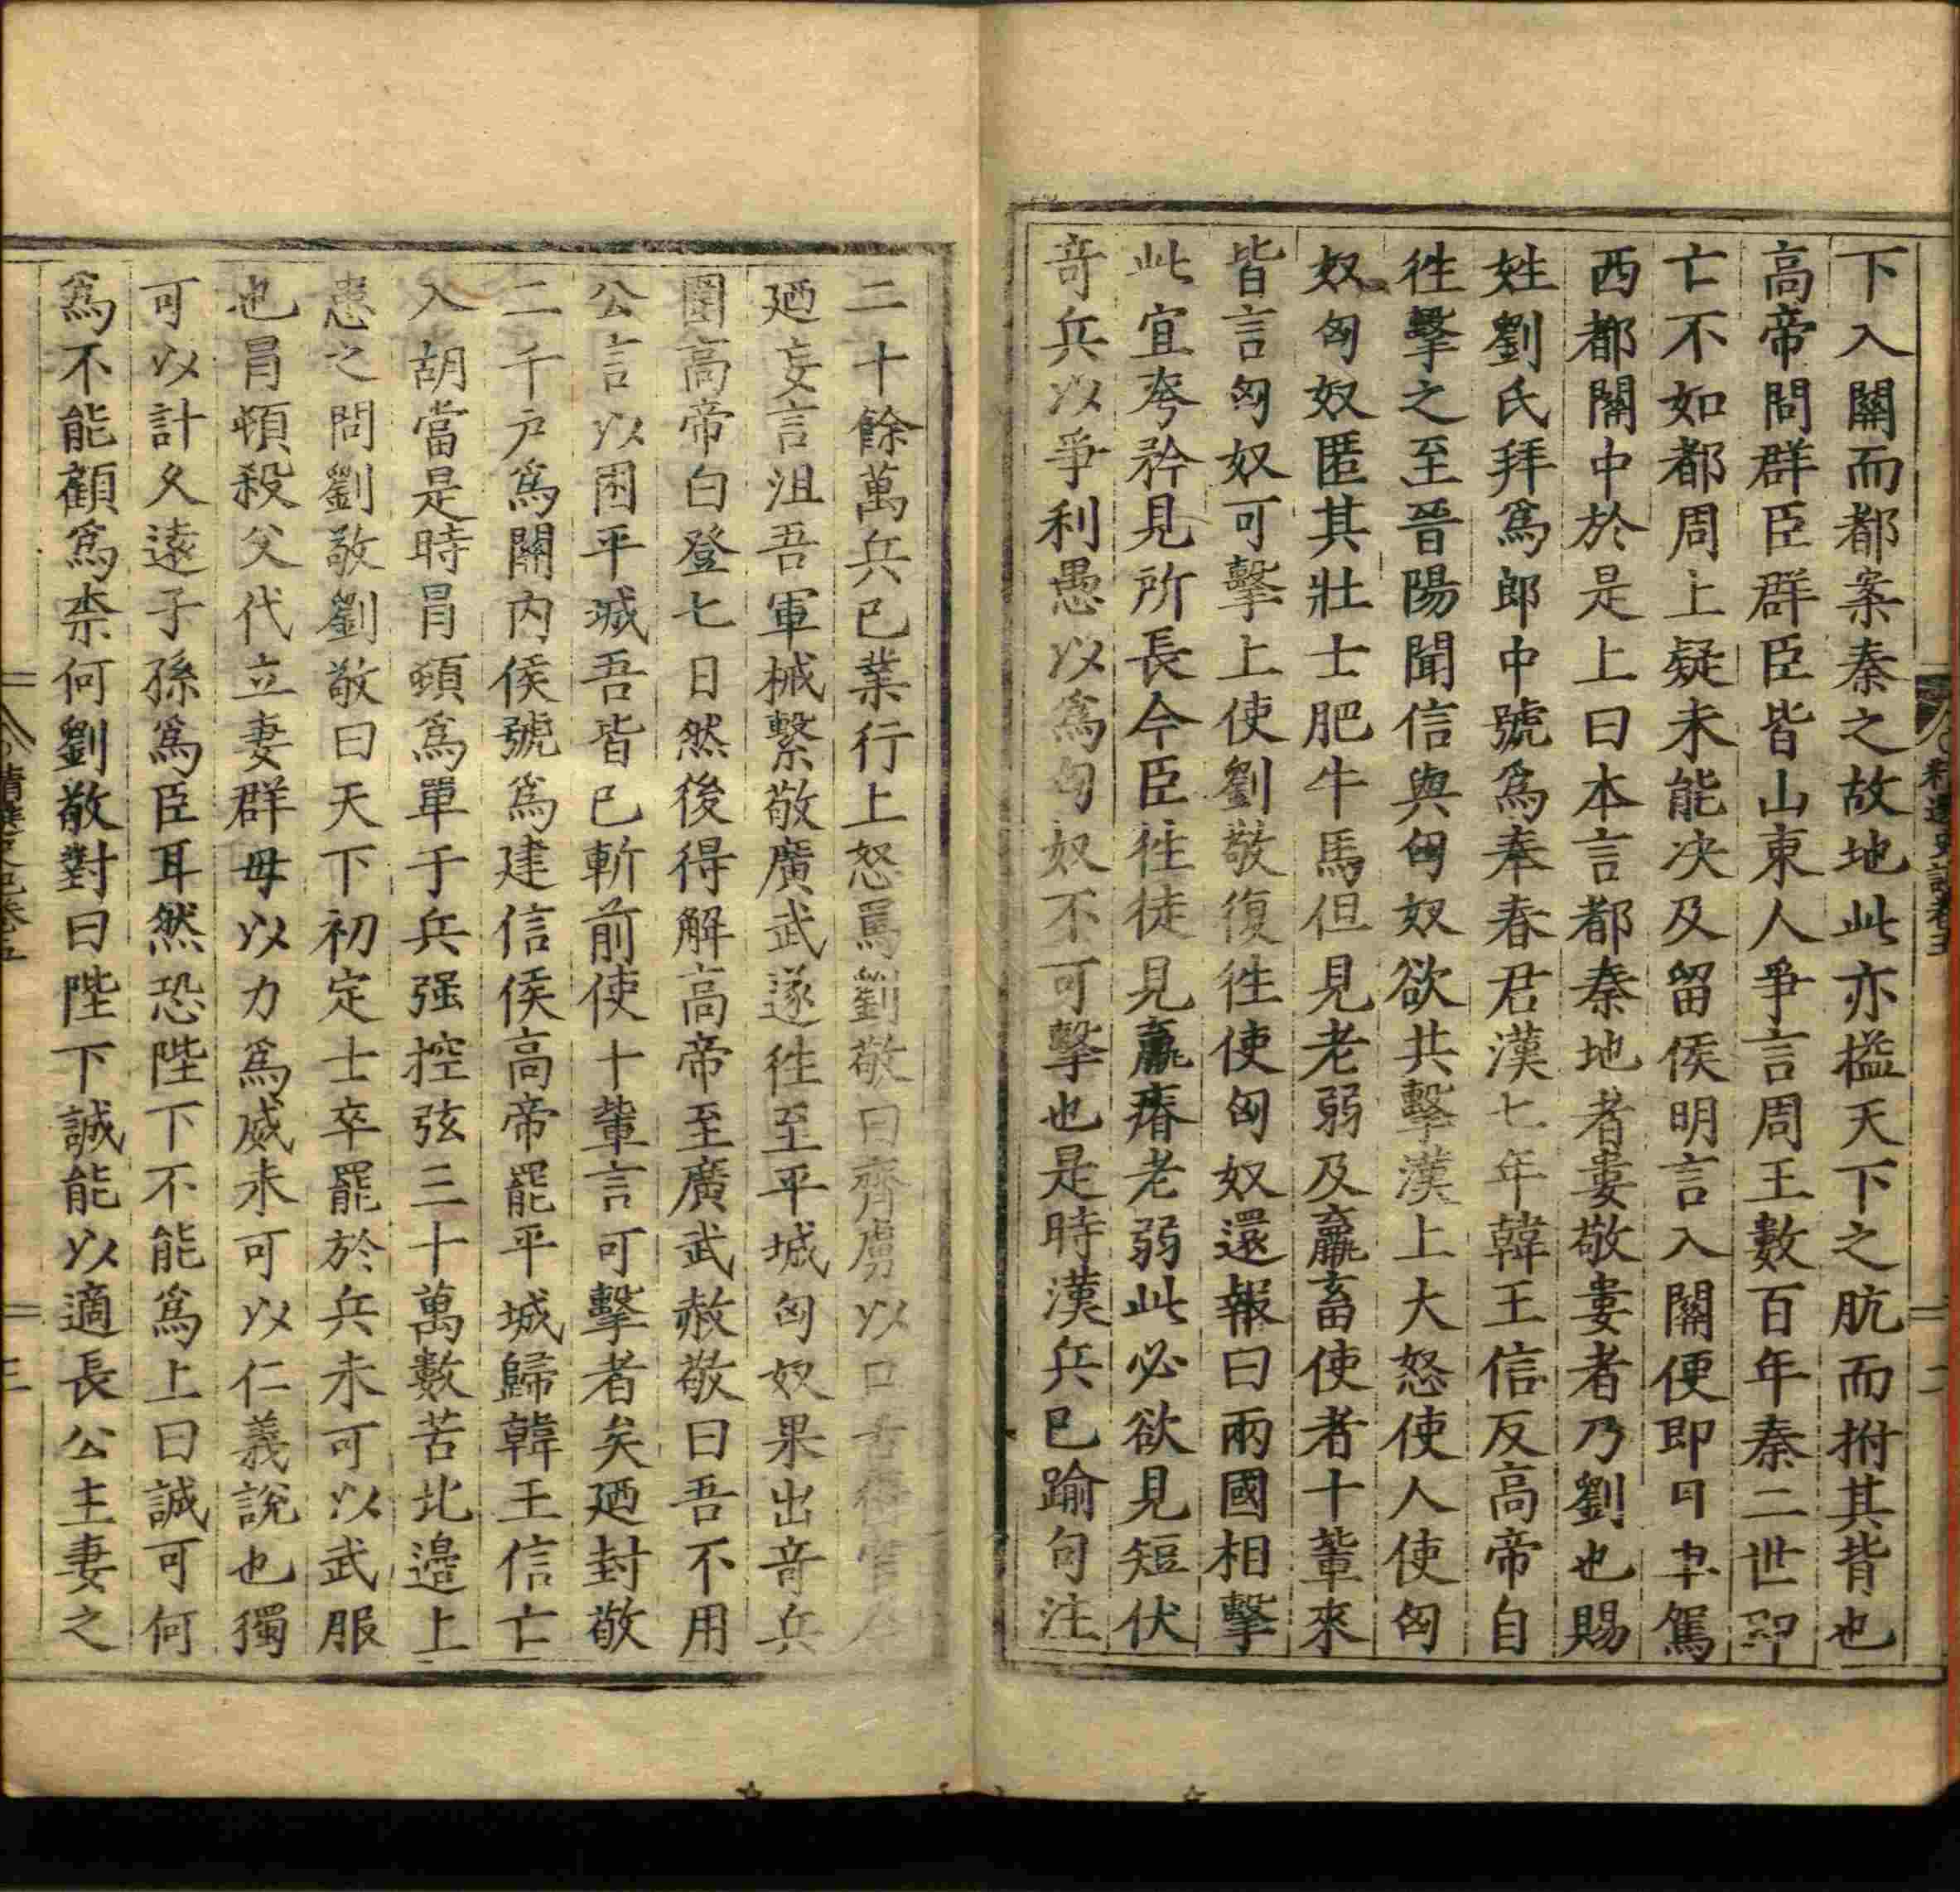 下入關而都案秦之故地此亦搤天下之肮而拊其背也
高帝問群臣群臣皆山東人爭言周王數百年秦二世即
亡不如都周上疑未能决及留侯明言入關便即日車駕
西都關中於是上曰本言都秦地者婁敬婁者乃劉也賜
姓劉氏拜爲郎中號爲奉春君漢七年韓王信反高帝自
徃擊之至晉陽聞信與匈奴欲共擊漢上大怒使人使匈
奴匈奴匿其壯士肥牛馬但見老弱及羸畜使者十輩來
皆言匈奴可擊上使劉敬復徃使匈奴還報曰兩國相擊
此宜夸矜見所長今臣徃徒見羸瘠老弱此必欲見短伏
竒兵以爭利愚以爲匈奴不可擊也是時漢兵已踰句注
二十餘萬兵已業行上怒罵劉敬曰齊虜以口舌得官今
廼妄言沮吾軍械繫敬廣武遂徃至平城匈奴果出竒兵
圍高帝白登七日然後得解高帝至廣武赦敬曰吾不用
公言以困平城吾皆已斬前使十輩言可擊者矣廼封敬
二千户爲關内侯號爲建信侯高帝罷平城歸韓王信亡
入胡當是時冐頓爲單于兵强控弦三十萬數苦北邉上
患之問劉敬劉敬曰天下初定士卒罷於兵未可以武服
也冐頓殺父代立妻群母以力爲威未可以仁義說也獨
可以計久遠子孫爲臣耳然恐陛下不能爲上曰誠可何
爲不能顧爲柰何劉敬對曰陛下誠能以適長公主妻之